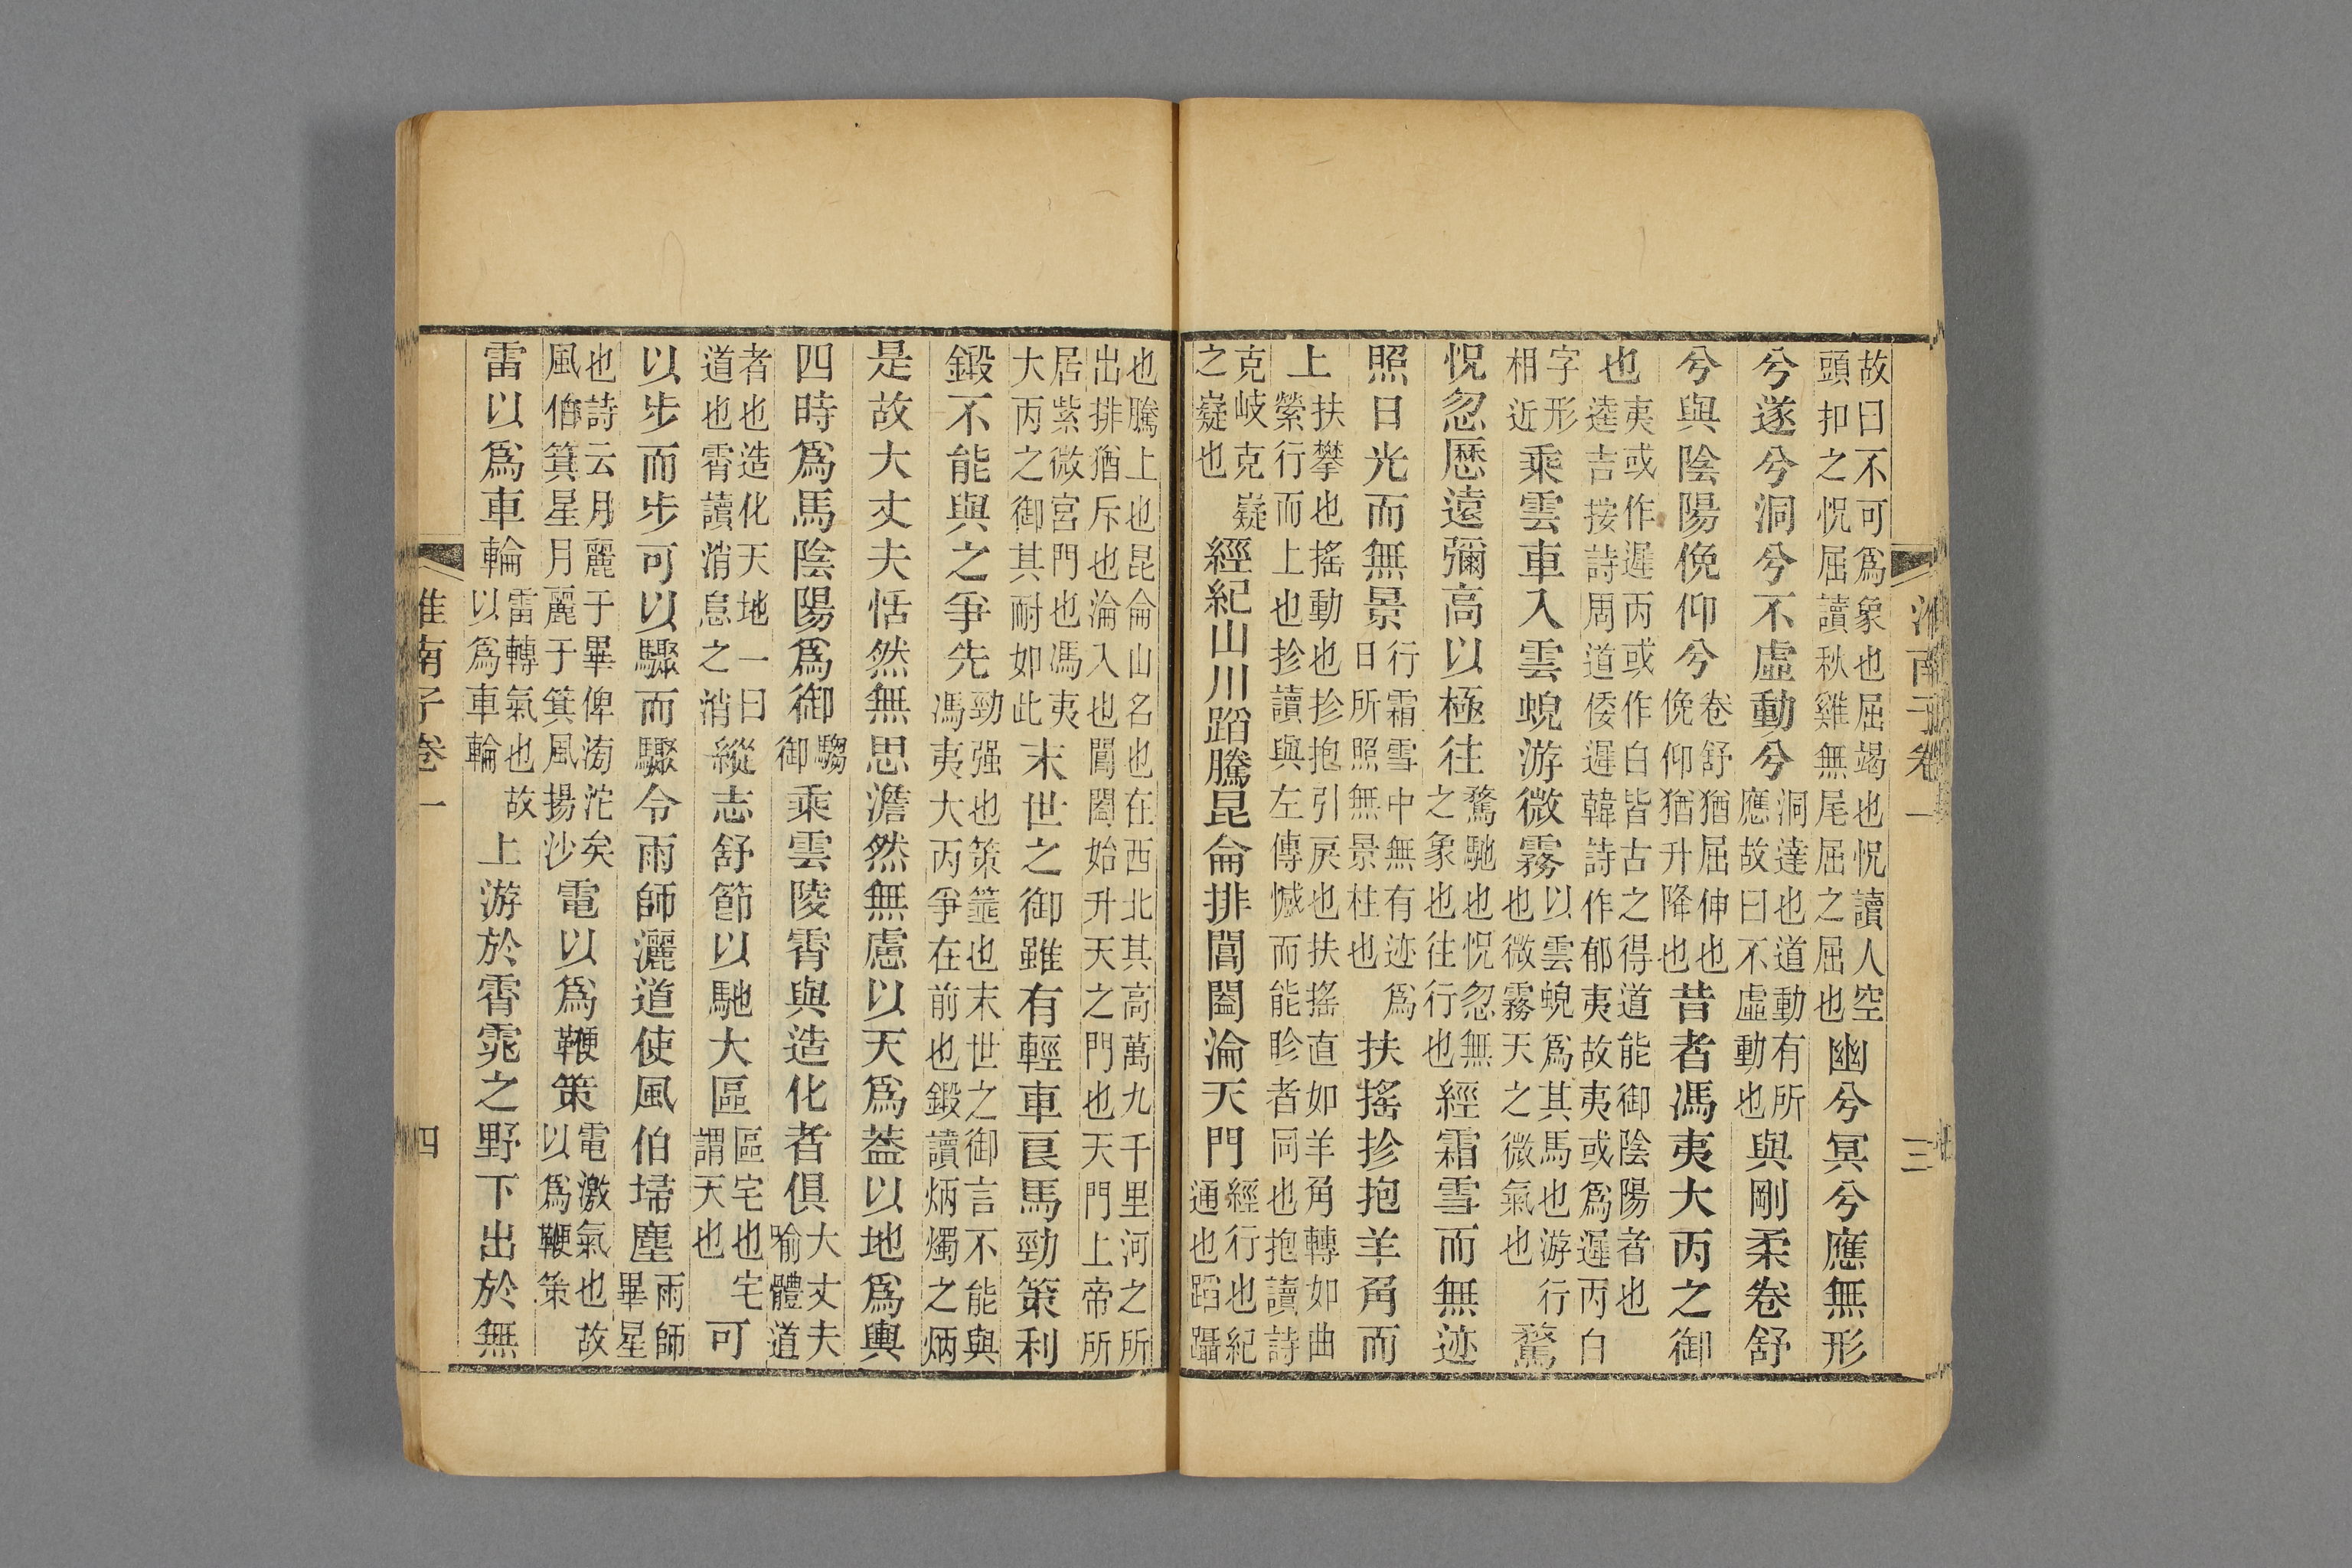 淮南子卷一　三
故曰不可爲象也屈竭也怳讀人空頭扣之怳屈讀秋雞無尾屈之屈也幽兮冥兮應無形
兮遂兮洞兮不虛動兮洞達也道動有所應故曰不虛動也與剛柔卷舒
兮與陰陽俛仰兮卷舒猶屈伸也俛仰猶升降也昔者馮夷大丙之御
也夷或作遲丙或作白皆古之得道能御陰陽者也逵吉按詩周道倭遲韓詩作郁夷故夷或爲遲丙白
字形相近乘雲車入雲蜺游微霧以雲蜺爲其馬也游行也微霧天之微氣也騖
怳忽歷遠彌高以極往騖馳也怳忽無之象也往行也經霜雪而無迹
照日光而無景行霜雪中無有迹爲日所照無景柱也扶搖抮抱羊角而
上扶攀也搖動也抮抱引戾也扶搖直如羊角轉如曲縈行而上也抮讀與左傳憾而能眕者同也抱讀詩
克岐克嶷之嶷也經紀山川蹈騰昆侖排閶闔淪天門經行也紀通也蹈躡
也騰上也昆侖山名也在西北其高萬九千里河之所出排猶斥也淪入也閶闔始升天之門也天門上帝所
居紫微宮門也馮夷大丙之御其耐如此末世之御雖有輕車良馬勁策利
鍛不能與之爭先勁强也策箠也末世之御言不能與馮夷大丙爭在前也鍛讀炳燭之炳
是故大丈夫恬然無思澹然無慮以天爲蓋以地爲輿
四時爲馬陰陽爲御騶御乘雲陵霄與造化者俱大丈夫喻體道
者也造化天地一曰道也霄讀消息之消縱志舒節以馳大區區宅也宅謂天也可
以步而步可以驟而驟令雨師灑道使風伯埽塵雨師畢星
也詩云月麗于畢俾滂沱矣風伯箕星月麗于箕風揚沙電以爲鞭策電激氣也故以爲鞭策
雷以爲車輪雷轉氣也故以爲車輪上游於霄雿之野下出於無
淮南子卷一　四